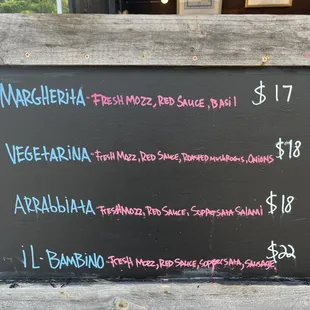 MARGHERITA - FRESH MOZZ, RED SAUCE, BASIL $17
VEGETARINA - FRESH MOZZ, RED SAUCE, ROASTED MUSHROOMS, ONIONS $18
ARRABBIATA - FRESH MOZZ, RED SAUCE, SOPPRSATA SALAMI $18
IL-BAMBINO - FRESH MOZZ, RED SAUCE, SOPPRSATA, SAUSAGE $22